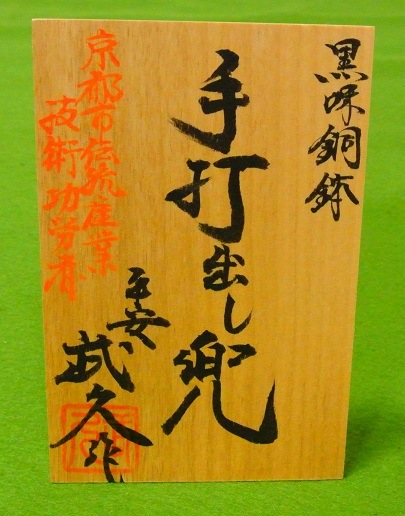 黒味銅鉢
手打出し兜
平安
武久作
京都市伝統産業
技術功労者